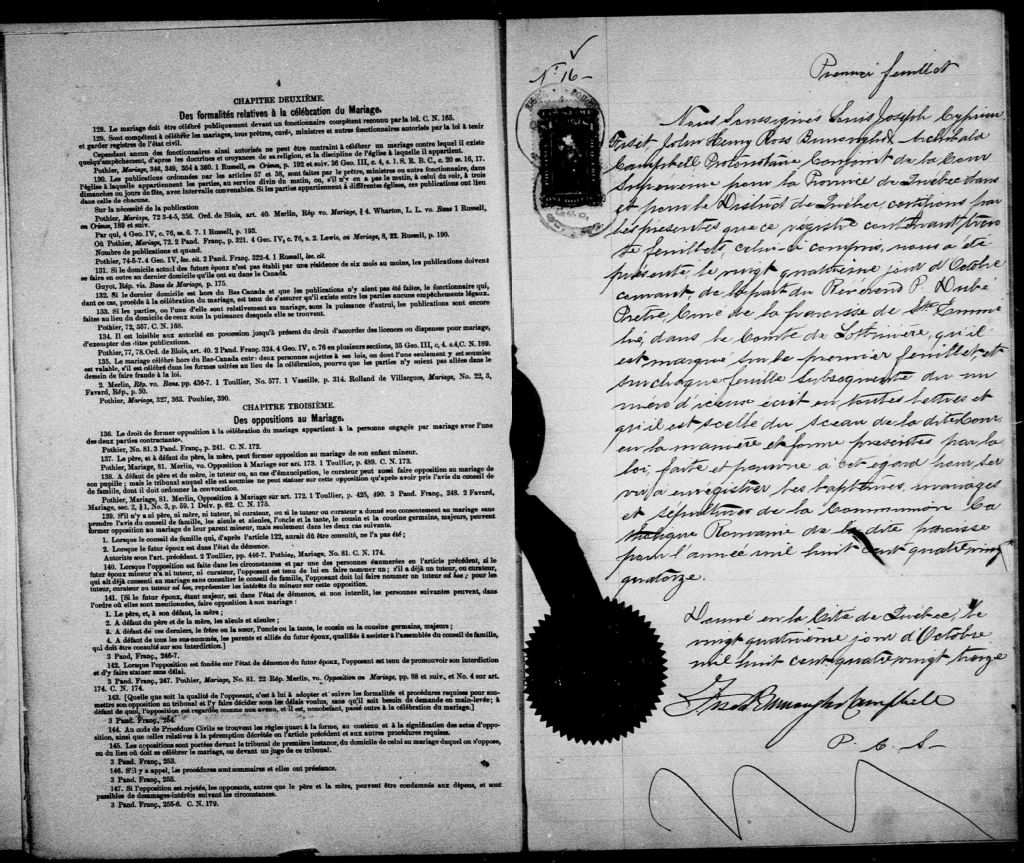 4
CHAPITRE DEUXIÈME.
Des formalités relatives à la célébration du Mariage.
128. Le mariage doit être célébré publiquement devant un fonctionnaire compétent reconnu par la loi. C. N. 165.
129. Sont compétents à célébrer les mariages, tous prêtres, curés, ministres et autres fonctionnaires autorisés par la loi à tenir
et garder registres de l'état civil.
Cependant aucun des fonctionnaires ainsi autorisés ne peut être contraint à célébrer un mariage contre lequel il existe
quelqu'empêchement, d'après les doctrines et croyances de sa religion, et la discipline de l'église à laquelle il appartient.
Pothier, Mariage, 346, 349, 354 à 360. 1 Russell, on Crimes, p. 192 et suiv. 36 Geo. III, c. 4, s. 1. S. R. B. C., c. 20 ss. 16, 17.
130. Les publications ordonnées par les articles 57 et 58, sont faites par le prêtre, ministre ou autre fonctionnaire, dans
l'église à laquelle appartiennent les parties, au service divin du matin, ou, s'il n'y en a pas le matin, à celui du soir, à trois
dimanches ou jours de fête, avec intervalle convenables. Si les parties appartiennent à différentes églises, ces publications ont lieu
dans celle de chacune.
Sur la nécessité de la publication
Pothier, Mariage, 72 3-4-5, 356. Ord. de Blois, art. 40. Merlin, Rép vo. Mariage, § 4. Wharton, L. L. vo. Bans 1 Russell,
on Crimes, 189 et suiv.
Par qui, 4 Geo. IV, c. 76, ss. 6. 7. 1 Russell, p. 193.
Où Pothier, Mariage, 72. 2 Pand. Franç., p. 321. 4 Geo. IV, c. 76, s. 2. Lewis, on Mariage, 8, 22. Russell, p. 190.
Nombre de publications et quand.
Pothier, 74-5-7. 4 Geo. IV, loc. cit. 2 Pand. Franç. 322-4. 1 Russell, loc. cit.
131. Si le domicile actuel des futurs époux n'est pas établi par une résidence de six mois au moins, les publications doivent
se faire en outre au dernier domicile qu'ils ont eu dans le Canada.
Guyot, Rép. vis. Bans de Mariage, p. 175.
132. Si le dernier domicile est hors du Bas-Canada et que les publications n'y aient pas été faites, le fonctionnaire qui,
dans ce cas, procède à la célébration du mariage, est tenu de s'assurer qu'il existe entre les parties aucuns empêchements légaux.
133. Si les parties, ou l'une d'elles sont relativement au mariage, sous la puissance d'autrui, les publications sont encore
faites au lieu du domicile de ceux sous la puissance desquels elle se trouvent.
Pothier, 72, 357. C. N. 168.
134. Il est loisible aux autorité en possession jusqu'à présent du droit d'accorder des licences ou dispenses pour mariage,
d'exempter des dites publications.
Pothier, 77, 78. Ord. de Blois, art. 40. 2 Pand. Franç. 324. 4 Geo. IV, c. 76 en plusieurs sections, 35 Geo. III, c. 4. s.4, C. N. 169.
135. Le mariage célébré hors du Bas-Canada entre deux personnes sujettes à ses lois, ou dont l'une seulement y est soumise
est valable, s'il est célébré dans les formes usitées au lieu de la célébration, pourvu que les parties n'y soient pas allées dans le
dessein de faire fraude à la loi.
2. Merlin, Rép. vo. Bans. pp. 436-7. 1 Toullier, No. 577. 1 Vazeille, p. 314. Rolland de Villargues, Mariage, No. 22, 3,
Favard, Rép., p. 30.
Pothier, Mariage, 327, 363. Pouhier, 390.
CHAPITRE TROISIÈME.
Des oppositions au Mariage.
136. Le droit de former opposition à la célébration du mariage appartient à la personne engagée par mariage avec l'une
des deux parties contractantes.
Pothier, No. 81. 3 Pand. Franç., p. 241. C. N. 172.
137. Le père, et à défaut du père, la mère, peut former opposition au mariage de son enfant mineur.
Pothier, Mariage, 81. Merlin, vo. Opposition à Mariage sur art. 173. 1 Toullier, p. 489. C. N. 173.
138. A défaut de père et de mère, le tuteur ou, au cas d'émancipation, le curateur peut aussi faire opposition au mariage de
son pupille ; mais le tribunal auquel elle est soumise ne peut statuer sur cette opposition qu'après avoir pris l'avis du conseil de
famille, dont il doit ordonner la convocation.
Pothier, Mariage, 81. Merlin, vo. Opposition à Mariage sur art. 172. 1 Toullier, p. 425, 490. 3 Pand. Franç., 248. 2 Favard,
Mariage, sec. 2, § 1, No. 3, p. 59. 1 Delv. p. 62. C. N. 175.
139. S'il n'y a ni père, ni mère, ni tuteur, ni curateur, ou si le tuteur ou curateur a donné son consentement au mariage sans
prendre l'avis du conseil de famille, les aïeuls et aïeules, l'oncle et la tante, le cousin et la cousine germains, majeurs, peuvent
former opposition au mariage de leur parent mineur, mais seulement dans les deux cas suivants.
1. Lorsque le conseil de famille qui, d'après l'article 122, aurait dû être consulté, ne l'a pas été ;
2. Lorsque le futur époux est dans l'état de démence.
Autorités sous l'art. précédent. 2 Toullier, pp. 446-7. Pothier, Mariage, No. 81. C. N. 174.
140. Lorsque l'opposition est faite dans les circonstances et par une des personnes énumérées en l'article précédent, si le
futur époux mineur n'a ni tuteur, ni curateur, l'opposant est tenu de lui en faire nommer un ; s'il a déjà un tuteur ou curateur,
qui ait déjà consenti au mariage sans consulter le conseil de famille, l'opposant doit lui faire nommer un tuteur ad hoc ; pour les
tuteur, curateur ou tuteur ad hoc, représenter les intérêts du mineur sur cette opposition.
141. [Si le futur époux, étant majeur, est dans l'état de démence, et non interdit, les personnes suivantes peuvent, dans
l'ordre où elles sont mentionnées, faire opposition à son mariage :
1. Le père, et, à son défaut, la mère ;
2. A défaut du père et de la mère, les aïeuls et aïeules ;
3. A défaut de ces derniers, le frère ou la sœur, l'oncle ou la tante, le cousin ou la cousine germains, majeurs ;
4. A défaut de tous les sus-nommés, les parents et alliés du futur époux, qualifiés à assister à l'assemblée du conseil de famille,
qui doit être consulté sur son interdiction.]
3 Pand. Franç., 246-7.
142. Lorsque l'opposition est fondée sur l'état de démence du futur époux, l'opposant est tenu de promouvoir son interdiction
et d'y faire statuer sans délai.
3 Pand. Franç., 247. Pothier, Mariage, No. 81. 22 Rép. Merlin, vo. Opposition au Mariage, pp. 88 et suiv., et No. 4 sur art.
174. C. N. 174.
143. [Quelque soit la qualité de l'opposant, c'est à lui à adopter et suivre les formalités et procédures requises pour sou-
mettre son opposition au tribunal et l'y faire décider sous les délais voulus, sans qu'il soit besoin de demande en main-levée ; à
défaut de quoi, l'opposition est regardée comme non avenue, et il est, nonobstant, passé outre à la célébration du mariage.]
3 Pand. Franç., 254.
144. Au code de Procédure Civile se trouvent les règles quant à la forme, au contenu et à la signification des actes d'oppo-
sition, ainsi que celles relatives à la péremption décrétée en l'article précédent et aux autres procédures requises.
145. Les oppositions sont portées devant le tribunal de première instance, du domicile de celui au mariage duquel on s'oppose,
ou du lieu où doit se célébrer le mariage, ou devant un juge de ce tribunal.
3 Pand. Franç., 253.
146. S'il y a appel, les procédures sont sommaires et elles ont préséance.
3 Pand. Franç., 253.
147. Si l'opposition est rejetée, les opposants, autres que le père et la mère, peuvent être condamnés aux dépens, et sont
passibles de dommages-intérêts suivant les circonstances.
3 Pand. Franç., 255-6. C. N. 179.
No 16
Premier feuillet
Nous Soussignés Louis Joseph Cyprien
Fiset John Henry Ross Burroughs & Archibald
Campbell Protonotaire Conjoint de la Cour
Supérieure pour la Province de Québec dans
et pour le District de Québec certifions par
les présentes que ce registre contenant tren
te feuillets, celui-ci compris, nous a été
présenté, le vingt quatrième jour d'Octobre
courant, de la part du Révérend P. Dubé
Prêtre, Curé de la paroisse de Ste Emmé
lie, dans le Comté de Lotbinière, qu'il
est marqué sur le premier feuillet et
sur chaque feuille subséquente du nu
méro d'iceux écrit en toutes lettres et
qu'il est scellé du sceau de la dite Cour
en la manière et forme prescrites par la
loi, faite et pourvue à cet égard pour ser
vir à enregistrer les baptêmes, mariages
et sépultures de la Communion Ca
tholique Romaine de la dite paroisse
pour l'année mil huit cent quatre vingt
quatorze.
Donné en la Cité de Québec, le
vingt quatrième jour d'Octobre
mil huit cent quatre vingt treize
Fiset Burroughs & Campbell
P. C. S.